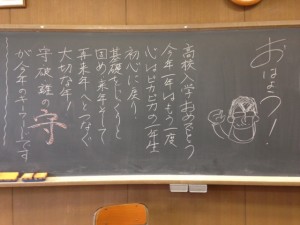 おはよう!
高校入学おめでとう
今年一年はもう一度
心はピカピカの一年生
初心に戻り
基礎をしっかりと
固め、来年そして
再来年へとつなぐ
大切な年!
守破離の守
が今年のテーマです